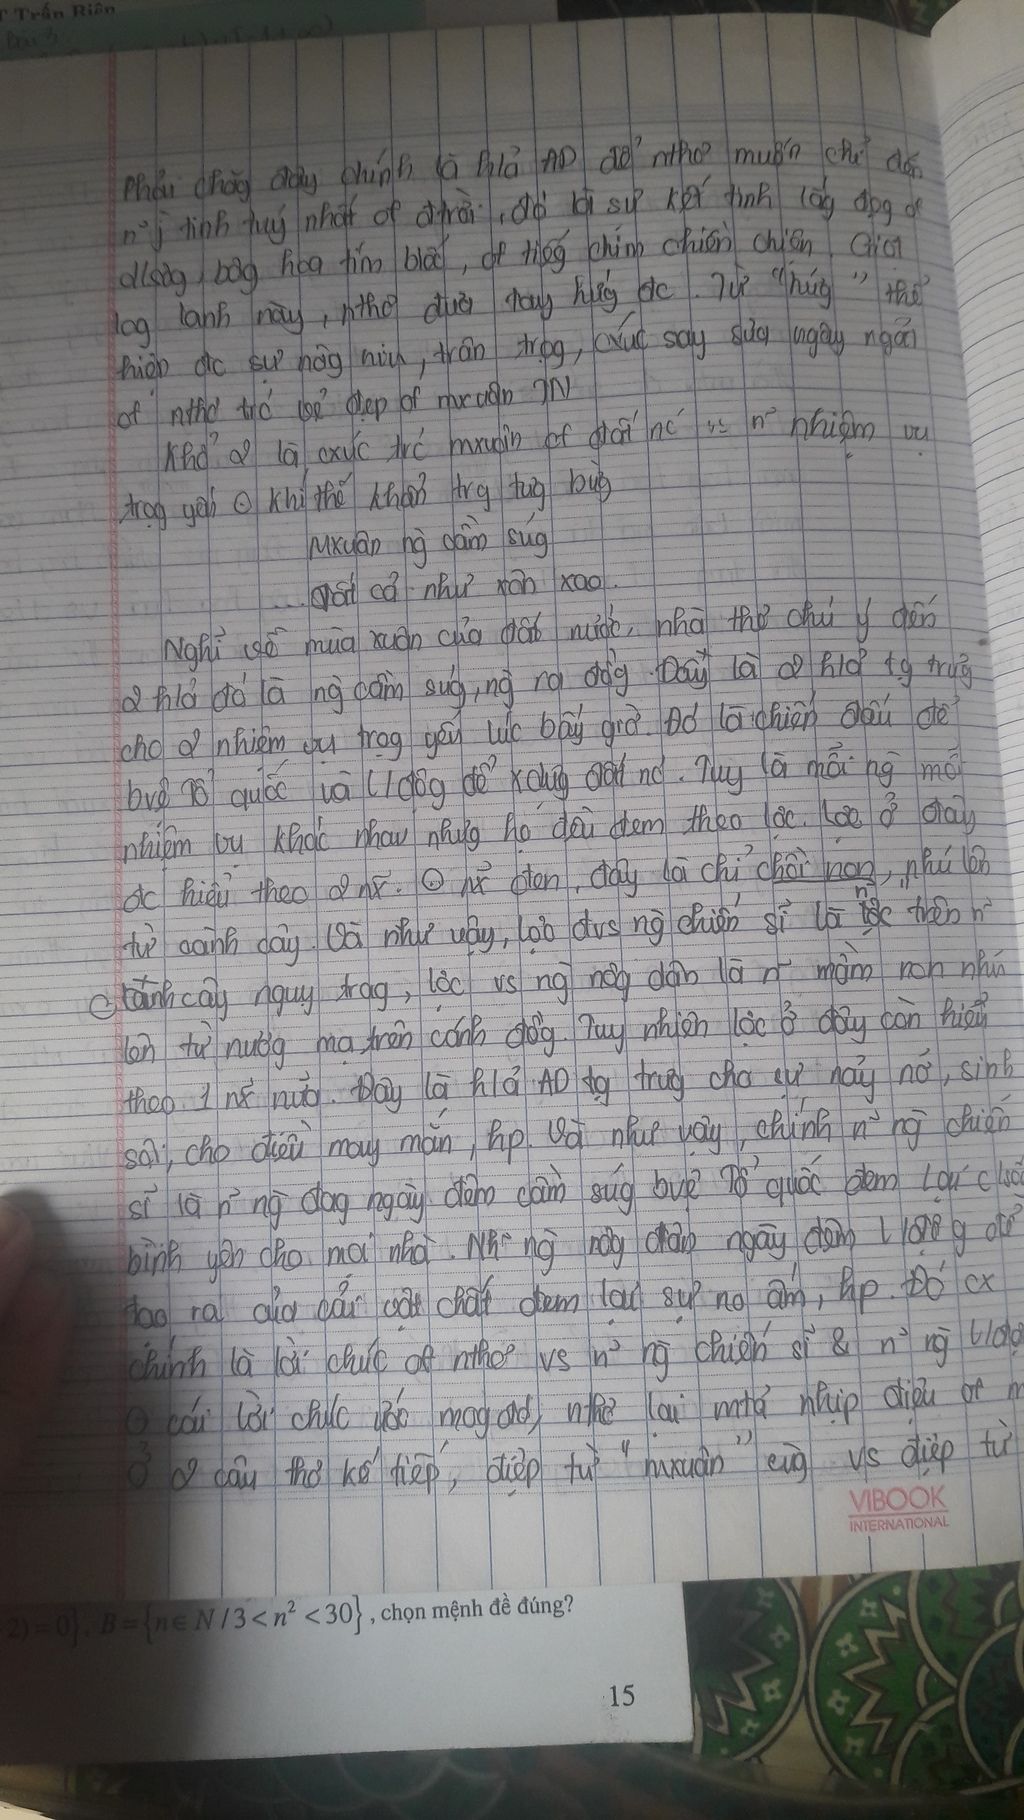 T Trấn Biên
Bài 3
Phải chăng đây chính là h/ả AD để nthơ muốn chỉ đến
n² j tinh tuý nhất of đ/trời, đó là sự kết tinh lắg đọg of
dlsôg, bôg hoa tím biếc, of tiếg chim chiền chiện. Giọt
log lanh này, nthơ đưa tay hứg đc. Từ "hứg" thể
hiện đc sự nâg niu, trân trọg, cxúc say sưa ngây ngất
of nthơ trc vẻ đẹp of mxuân TN
Khổ 2 là cxúc trc mxuân of đất nc vs n² nhiệm vụ
trọg yếu ⊖ khí thế khẩn trg tưg bừg
Mxuân ng cầm súg
... Tất cả như xôn xao.
Nghĩ về mùa xuân của đất nước, nhà thơ chú ý đến
2 h/ả đó là ng cầm súg, ng ra đồg. Đây là 2 h/ả tg trưg
cho 2 nhiệm vụ trọg yếu lúc bấy giờ. Đó là chiến đấu để
bvệ Tổ quốc và l/độg để xdựg đất nc. Tuy là mỗi ng mỗi
nhiệm vụ khác nhau nhưg họ đều đem theo lộc. Lộc ở đây
đc hiểu theo 2 n~. ⊖ n~ đen, đây là chỉ chồi non, nhú lên
từ cành cây. Và như vậy, lộc đvs ng chiến sĩ là lộc trên n²
cành cây nguỵ trag, lộc vs ng nôg dân là n² mầm non nhú
lên từ nươg mạ trên cánh đồg. Tuy nhiên lộc ở đây còn hiểu
theo 1 n~ nữa. Đây là h/ả AD tg trưg cho sự nảy nở, sinh
sôi, cho điều may mắn, hp. Và như vậy, chính n² ng chiến
sĩ là n² ng đag ngày đêm cầm súg bvệ Tổ quốc đem lại c/sốg
bình yên cho mọi nhà. Nh² ng nôg dân ngày đêm l/độg để
tạo ra của cải vật chất đem lại sự no ấm, hp. Đó cx
chính là lời chúc of nthơ vs n² ng chiến sĩ & n² ng l/độg
⊖ cái lời chúc nthơ lại mtả nhịp điệu of m
Ở 2 câu thơ kế tiếp, điệp từ "mxuân" cùg vs điệp từ
VIBOOK
INTERNATIONAL
2) = 0}, B = {n ∈ N / 3 < n² < 30}, chọn mệnh đề đúng?
15